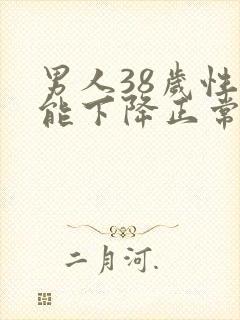 男人38歲性
能下降正常
二月河.